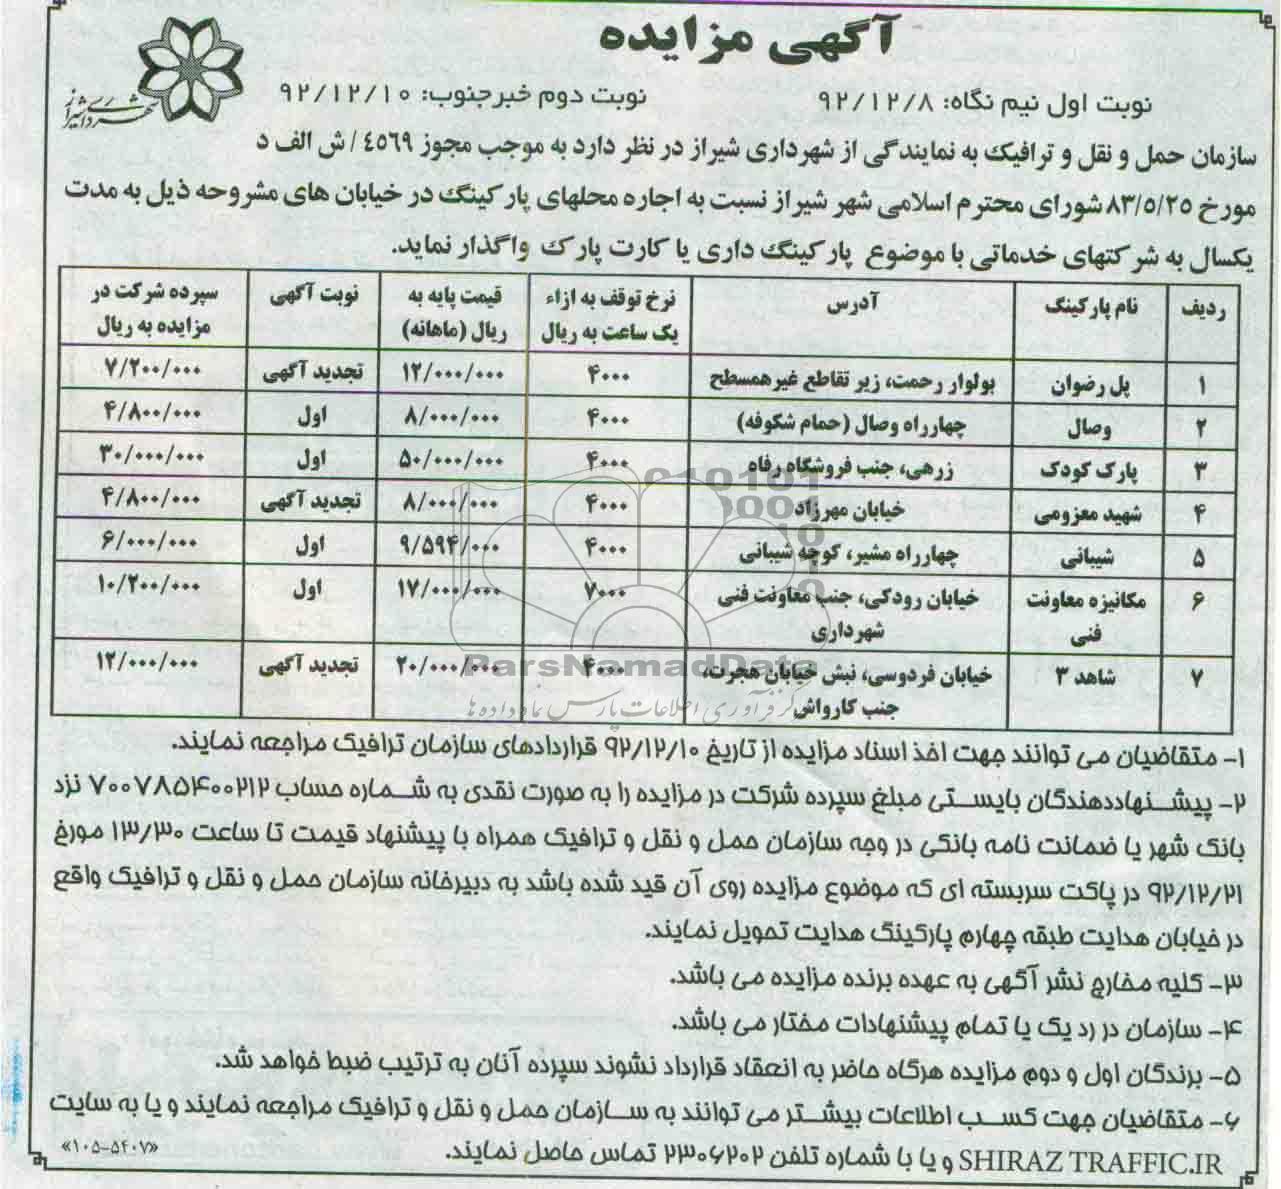 آگهی مزایده
شهرداری شیراز
نوبت اول نیم نگاه: ۹۲/۱۲/۸ نوبت دوم خبرجنوب: ۹۲/۱۲/۱۰
سازمان حمل و نقل و ترافیک به نمایندگی از شهرداری شیراز در نظر دارد به موجب مجوز ٤٥٦٩ / ش الف د
مورخ ۸۳/۵/۲۵ شورای محترم اسلامی شهر شیراز نسبت به اجاره محلهای پارکینگ در خیابان های مشروحه ذیل به مدت
یکسال به شرکتهای خدماتی با موضوع پارکینگ داری یا کارت پارک واگذار نماید.
ردیف نام پارکینگ آدرس نرخ توقف به ازاء یک ساعت به ریال قیمت پایه به ریال (ماهانه) نوبت آگهی سپرده شرکت در مزایده به ریال
۱ پل رضوان بولوار رحمت، زیر تقاطع غیرهمسطح ۴۰۰۰ ۱۲/۰۰۰/۰۰۰ تجدید آگهی ۷/۲۰۰/۰۰۰
۲ وصال چهارراه وصال (حمام شکوفه) ۴۰۰۰ ۸/۰۰۰/۰۰۰ اول ۴/۸۰۰/۰۰۰
۳ پارک کودک زرهی، جنب فروشگاه رفاه ۴۰۰۰ ۵۰/۰۰۰/۰۰۰ اول ۳۰/۰۰۰/۰۰۰
۴ شهید معزومی خیابان مهرزاد ۴۰۰۰ ۸/۰۰۰/۰۰۰ تجدید آگهی ۴/۸۰۰/۰۰۰
۵ شیبانی چهارراه مشیر، کوچه شیبانی ۴۰۰۰ ۹/۵۹۴/۰۰۰ اول ۶/۰۰۰/۰۰۰
۶ مکانیزه معاونت فنی خیابان رودکی، جنب معاونت فنی شهرداری ۷۰۰۰ ۱۷/۰۰۰/۰۰۰ اول ۱۰/۲۰۰/۰۰۰
۷ شاهد ۳ خیابان فردوسی، نبش خیابان هجرت، جنب کارواش ۴۰۰۰ ۲۰/۰۰۰/۰۰۰ تجدید آگهی ۱۲/۰۰۰/۰۰۰
ParsNamadData
۱- متقاضیان می توانند جهت اخذ اسناد مزایده از تاریخ ۹۲/۱۲/۱۰ قراردادهای سازمان ترافیک مراجعه نمایند.
۲- پیشنهاددهندگان بایستی مبلغ سپرده شرکت در مزایده را به صورت نقدی به شماره حساب ۷۰۰۷۸۵۴۰۰۲۱۲ نزد
بانک شهر یا ضمانت نامه بانکی در وجه سازمان حمل و نقل و ترافیک همراه با پیشنهاد قیمت تا ساعت ۱۳/۳۰ مورخ
۹۲/۱۲/۲۱ در پاکت سربسته ای که موضوع مزایده روی آن قید شده باشد به دبیرخانه سازمان حمل و نقل و ترافیک واقع
در خیابان هدایت طبقه چهارم پارکینگ هدایت تحویل نمایند.
۳- کلیه مخارج نشر آگهی به عهده برنده مزایده می باشد.
۴- سازمان در رد یک یا تمام پیشنهادات مختار می باشد.
۵- برندگان اول و دوم مزایده هرگاه حاضر به انعقاد قرارداد نشوند سپرده آنان به ترتیب ضبط خواهد شد.
۶- متقاضیان جهت کسب اطلاعات بیشتر می توانند به سازمان حمل و نقل و ترافیک مراجعه نمایند و یا به سایت
SHIRAZ TRAFFIC.IR و یا با شماره تلفن ۲۳۰۶۲۰۲ تماس حاصل نمایند.
«۱۰۵-۵۴۰۷»